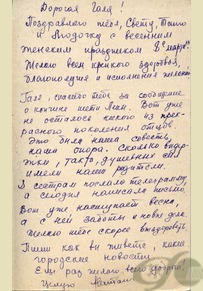 Дорогая Галя!
Поздравляю тебя, Свету, Таню
и Ягодку с весенним
женским праздником 8е марта.
Желаю всем крепкого здоровья,
благополучия и исполнения желаний.
Галя, спасибо тебе за сообщение
о кончине тети Ани. Вот уже
не осталось никого из прек-
расного поколения отцов.
Это были наша совесть,
наша опора. Сколько выдер-
жки, такта, душевных сил
имели наши родители.
Сестрам послала телеграмму,
а сегодня написала письмо.
Вот уж, наступает весна,
а с ней заботы и новые дела.
Желаю тебе скорее выздороветь
Пиши как вы живете, какие
городские новости.
Еще раз желаю всего доброго.
Целую